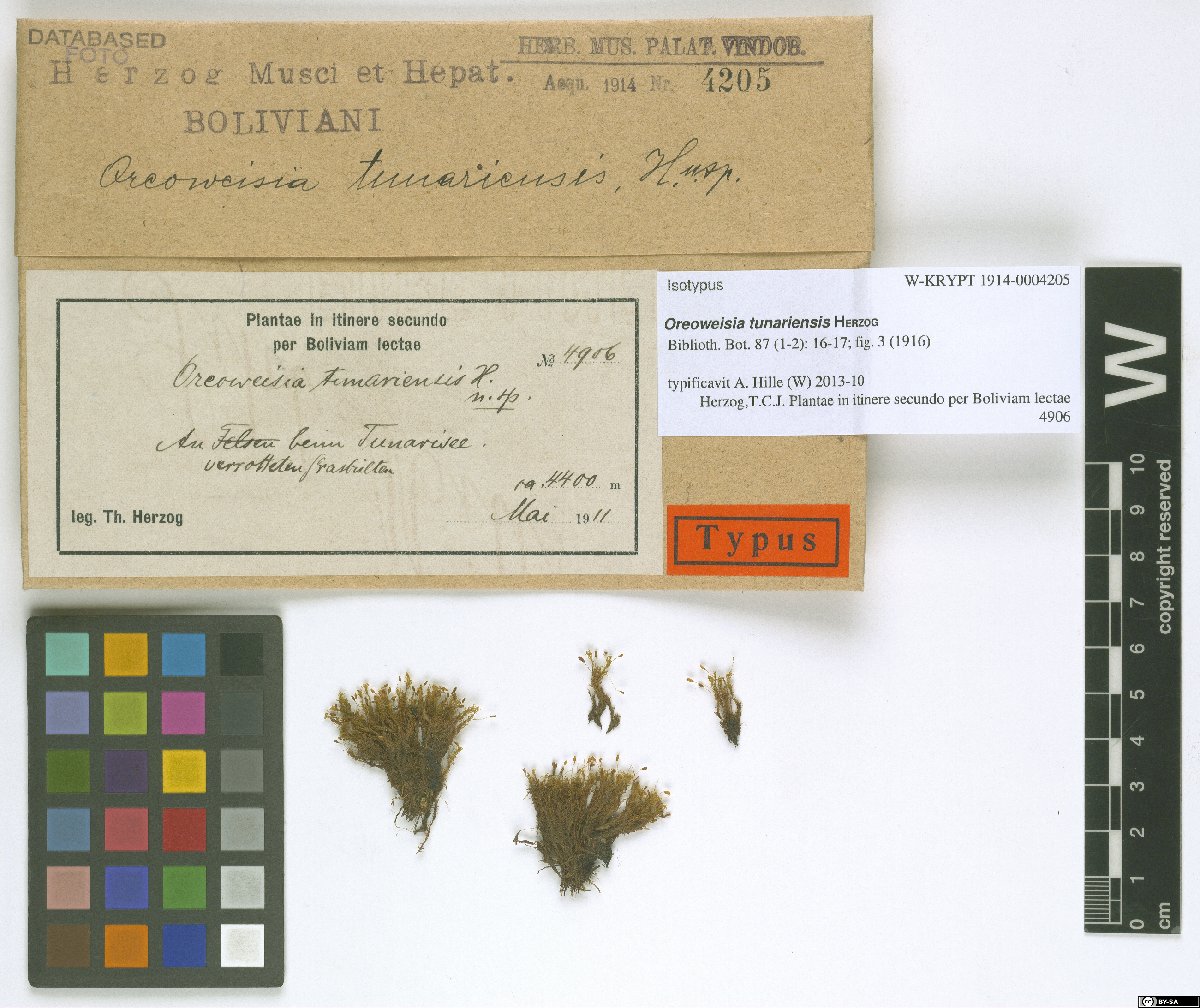 DATABASED
FOTO
HERB. MUS. PALAT. VINDOB.
Herzog Musci et Hepat.
Aequ. 1914 Nr. 4205
BOLIVIANI
Oreoweisia tunariensis, H. n. sp.
Plantae in itinere secundo
per Boliviam lectae
№ 4906
Oreoweisia tunariensis H.
n. sp.
An Felsen beim Tunarisee.
verrotteten
ca. 4400 m
Mai 1911
leg. Th. Herzog
Isotypus
W-KRYPT 1914-0004205
Oreoweisia tunariensis HERZOG
Biblioth. Bot. 87 (1-2): 16-17; fig. 3 (1916)
typificavit A. Hille (W) 2013-10
Herzog,T.C.J. Plantae in itinere secundo per Boliviam lectae
4906
Typus
W
10
9
8
7
6
5
4
3
2
1
0
cm
copyright reserved
BY-SA